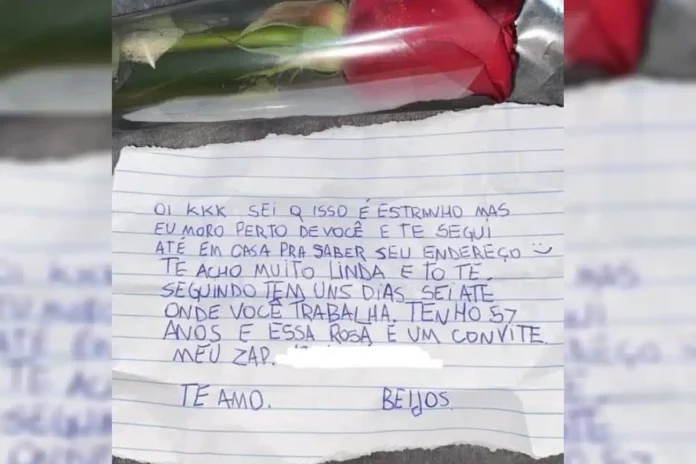 OI KKK SEI Q ISSO É ESTRANHO MAS
EU MORO PERTO DE VOCÊ E TE SEGUI
ATÉ EM CASA PRA SABER SEU ENDEREÇO :)
TE ACHO MUITO LINDA E TO TE
SEGUINDO TEM UNS DIAS. SEI ATÉ
ONDE VOCÊ TRABALHA. TENHO 57
ANOS E ESSA ROSA É UM CONVITE.
MEU ZAP.
TE AMO. BEIJOS.